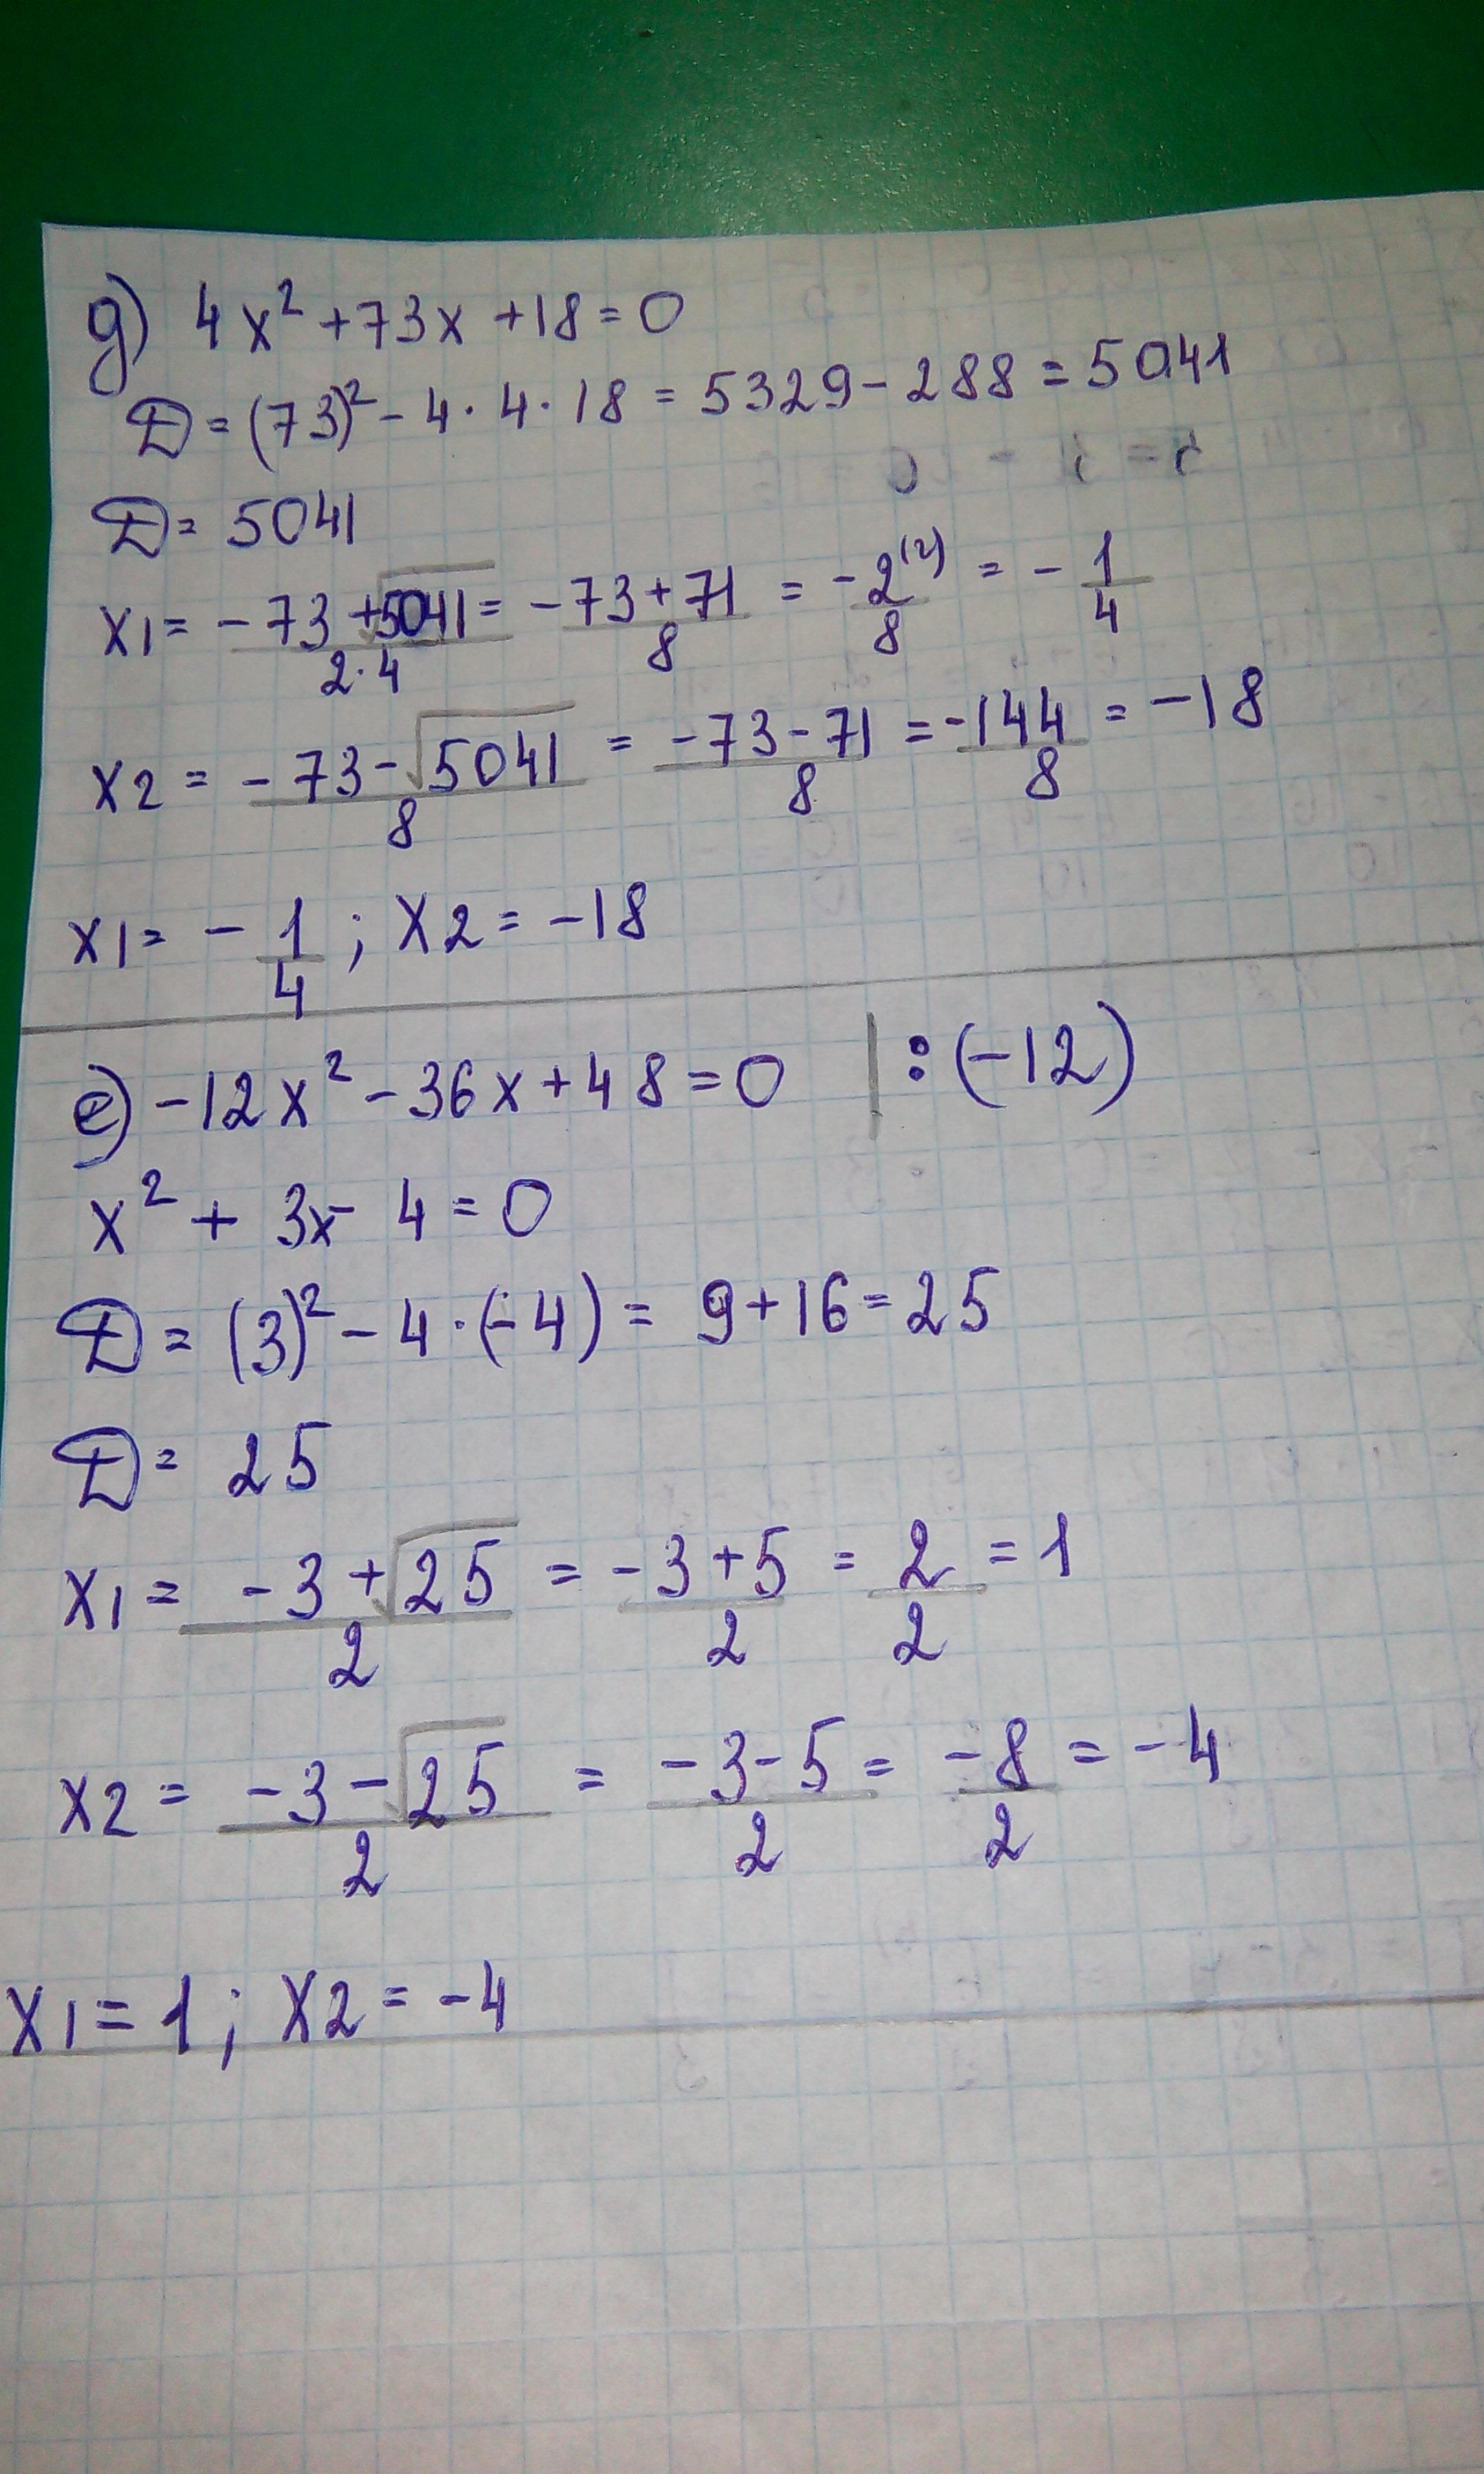 д) 4x² + 73x + 18 = 0
D = (73)² - 4 · 4 · 18 = 5329 - 288 = 5041
D = 5041
x1 = (-73 + √5041)/(2·4) = (-73 + 71)/8 = -2⁽²⁾/8 = -1/4
x2 = (-73 - √5041)/8 = (-73 - 71)/8 = -144/8 = -18
x1 = -1/4 ; x2 = -18
е) -12x² - 36x + 48 = 0 | : (-12)
x² + 3x - 4 = 0
D = (3)² - 4 · (-4) = 9 + 16 = 25
D = 25
x1 = (-3 + √25)/2 = (-3 + 5)/2 = 2/2 = 1
x2 = (-3 - √25)/2 = (-3 - 5)/2 = -8/2 = -4
x1 = 1 ; x2 = -4